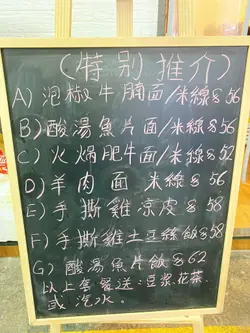 (特别推介)
A) 泡椒牛腩面/米線$56
B) 酸湯魚片面/米線$56
C) 火焗肥牛面/米線$52
D) 羊肉面 米線$56
E) 手撕雞凉皮$58
F) 手撕雞土豆絲飯$58
G) 酸湯魚片飯$62
以上套餐送:豆浆,花茶,
或汽水。